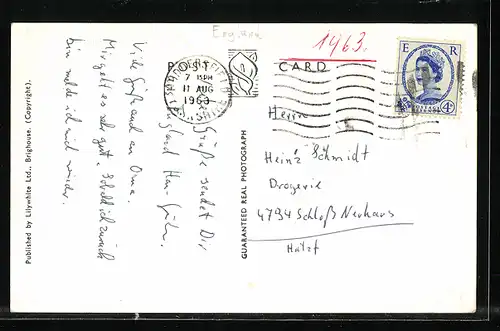 England
1963.
POST CARD
HUDDERSFIELD
7 15PM
11 AUG
1963
YORKSHIRE
E R
POSTAGE
4D
Herrn
Heinz Schmidt
Drogerie
4794 Schloß Neuhaus
Hatzf
Grüße sendet Dir
England Han-
Viele Grüße auch an Oma.
Mir geht es sehr gut. Sobald ich zurück
bin melde ich mich wieder.
GUARANTEED REAL PHOTOGRAPH
Published by Lilywhite Ltd., Brighouse. (Copyright).